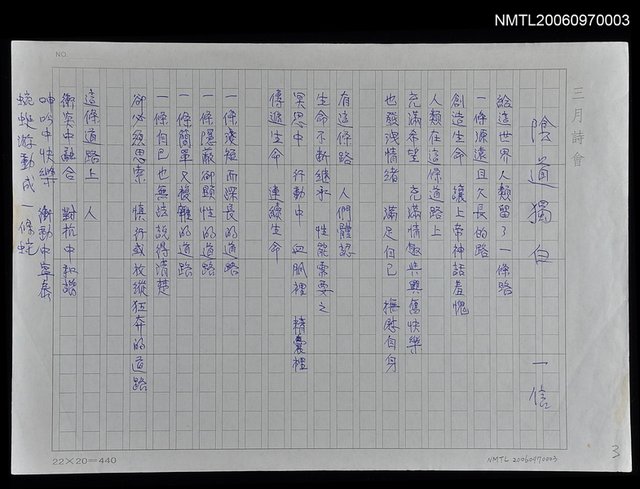 NMTL20060970003
NO.
三月詩會
陰道獨白　一信
給這世界人類留了一條路
一條源遠且久長的路
創造生命　讓上帝神話羞愧
人類在這條道路上
充滿希望　充滿情慾與興奮快樂
也發洩情緒　滿足自己　撫慰自身
有這條路　人們體認
生命不斷繼承　性能需要之
冥思中　行動中　血肌裡　精囊裡
傳遞生命　連續生命
一條淺短而深長的道路
一條隱蔽卻顯性的道路
一條簡單又複雜的道路
一條自己也無法說得清楚
卻必須思索　慎行或放縱狂奔的道路
這條道路上　人
衝突中融合　對抗中和諧
呻吟中快樂　衝動中寧息
蜿蜒游動成一條蛇
22×20=440
NMTL 20060970003
3